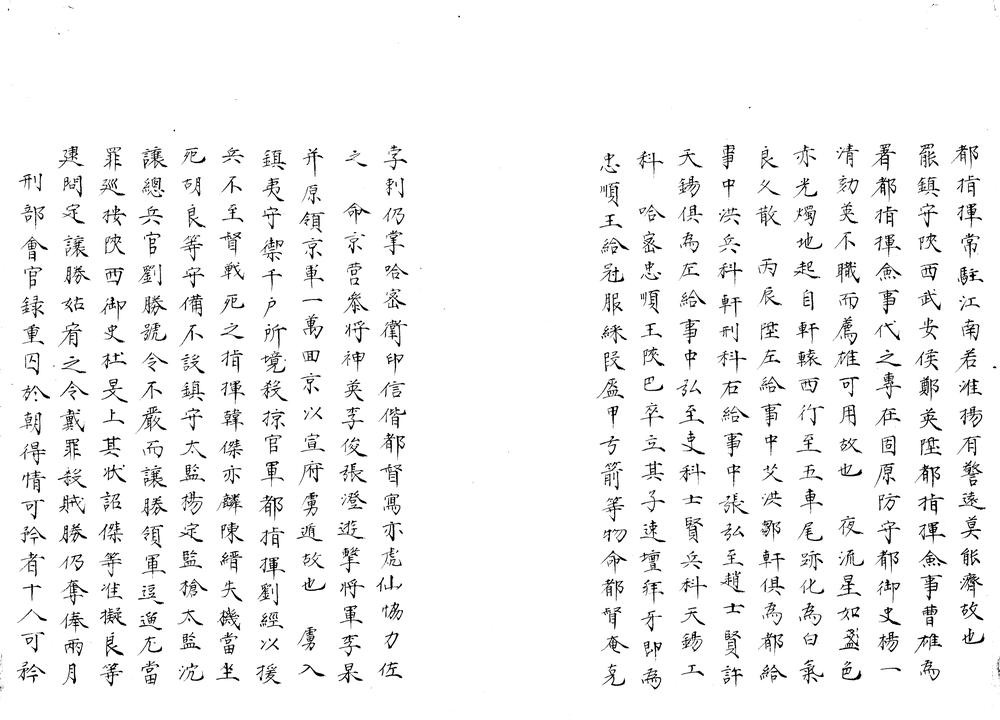 都指揮常駐江南若淮揚有警遠莫能濟故也
罷鎮守陝西武安侯鄭英陞都指揮僉事曹雄為
署都指揮僉事代之專在固原防守都御史楊一
清劾英不職而薦雄可用故也　夜流星如盞色
赤光燭地起自軒轅西行至五車尾跡化為白氣
良久散　丙辰陞左給事中艾洪鄒軒俱為都給
事中洪兵科軒刑科右給事中張弘至趙士賢許
天錫俱為左給事中弘至吏科士賢兵科天錫工
科　哈密忠順王陝巴卒立其子速壇拜牙即為
忠順王給冠服綵段盔甲弓箭等物命都督奄克
孛剌仍掌哈密衛印信偕都督寫亦虎仙恊力佐
之　命京營參將神英李俊張澄遊擊將軍李杲
并原領京軍一萬回京以宣府虜遁故也　虜入
鎮夷守禦千戶所境殺掠官軍都指揮劉經以援
兵不至督戰死之指揮韓傑亦麟陳縉失機當坐
死胡良等守備不設鎮守太監楊定監槍太監沈
讓總兵官劉勝號令不嚴而讓勝領軍逗遛尤當
罪巡按陝西御史杜旻上其狀詔傑等准擬良等
逮問定讓勝姑宥之令戴罪殺賊勝仍奪俸兩月
刑部會官録重囚於朝得情可矜者十人可矜